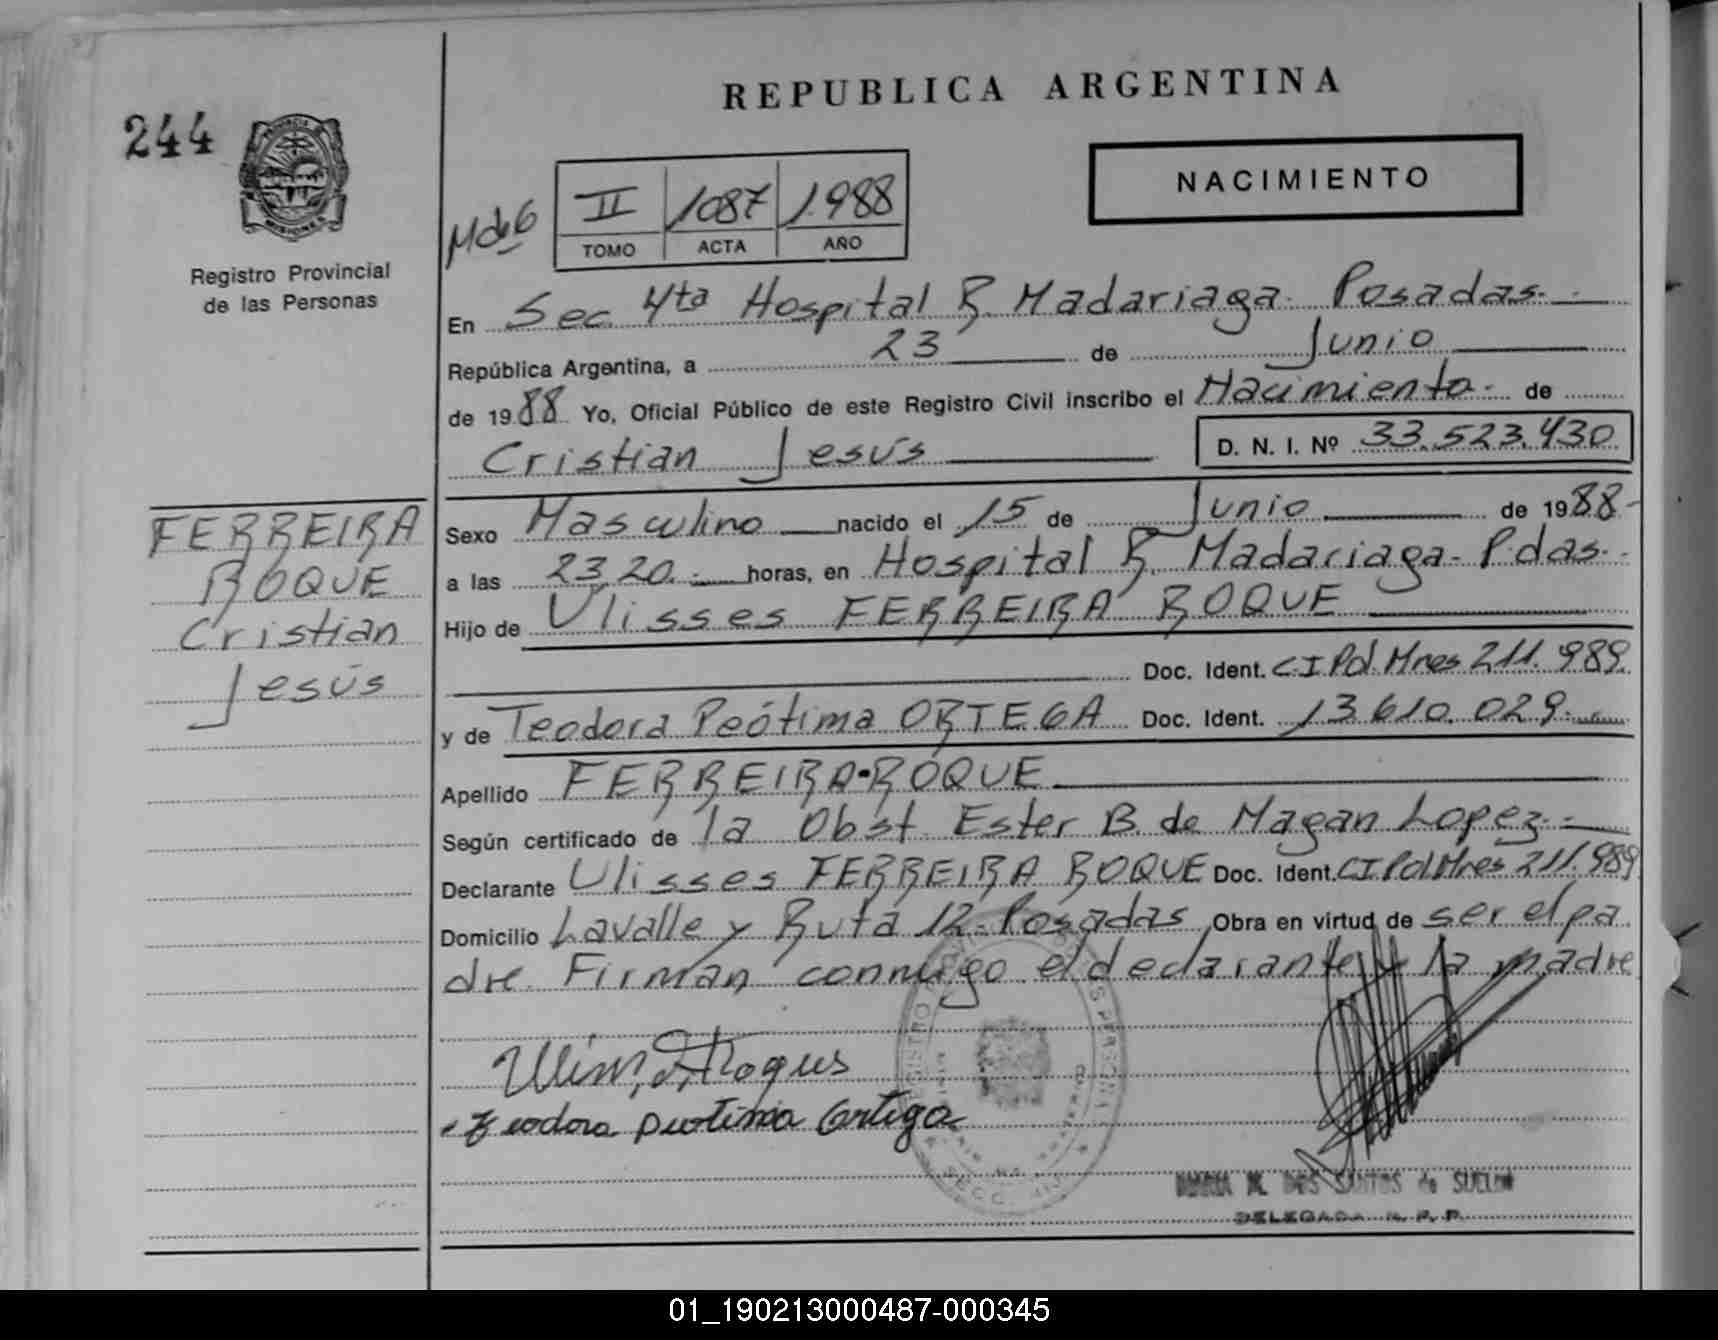 REPUBLICA ARGENTINA
244
NACIMIENTO
II 1087 1.988
TOMO ACTA AÑO
Registro Provincial
de las Personas
En Sec. 4ta Hospital R. Madariaga. Posadas.-
República Argentina, a 23 de Junio
de 1988 Yo, Oficial Público de este Registro Civil inscribo el Nacimiento. de
Cristian Jesús D. N. I. Nº 33.523.430
FERREIRA
ROQUE
Cristian
Jesús
Sexo Masculino nacido el 15 de Junio de 1988-
a las 23,20.- horas, en Hospital R. Madariaga- Pdas.-
Hijo de Ulisses FERREIRA ROQUE
Doc. Ident. CI Pol. Mnes 211.989.
y de Teodora Peótima ORTEGA Doc. Ident. 13.610.029.-
Apellido FERREIRA-ROQUE
Según certificado de la Obst. Ester B. de Magan Lopez.-
Declarante Ulisses FERREIRA ROQUE Doc. Ident. CI Pol Mnes 211.989
Domicilio Lavalle y Ruta 12- Posadas Obra en virtud de ser el pa
dre. Firman conmigo el declarante y la madre
Teodora Peotima Ortega
DOS SANTOS de
DELEGADA R. P. P.
01_190213000487-000345